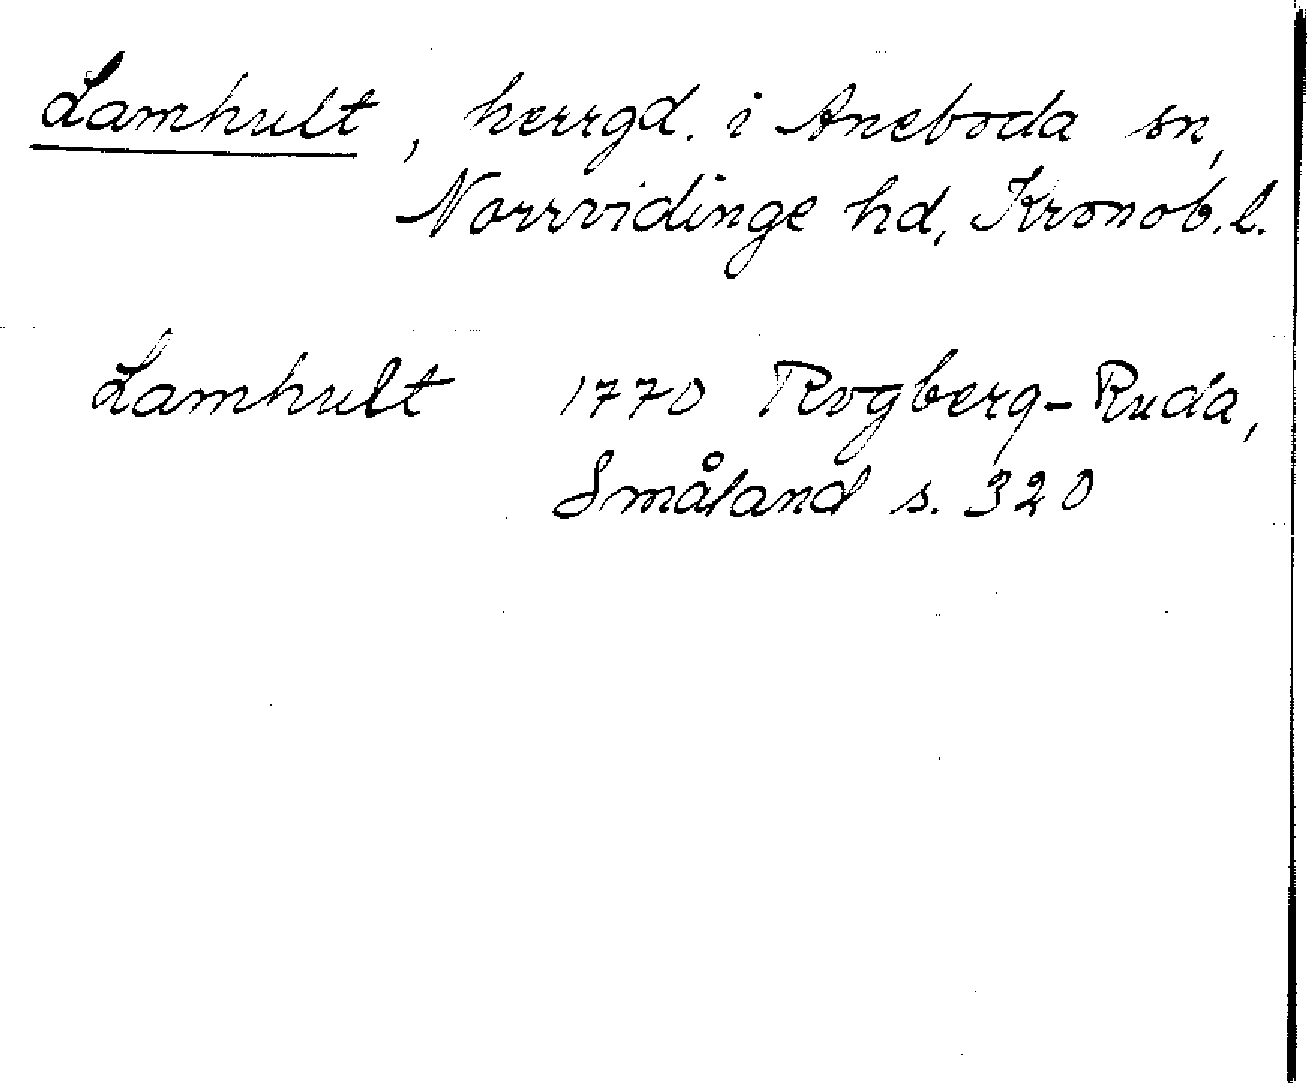 Lamhult, herrgd. i Aneboda sn,
Norrvidinge hd, Kronob. l.
Lamhult 1770 Rogberg-Ruda,
Småland s. 320